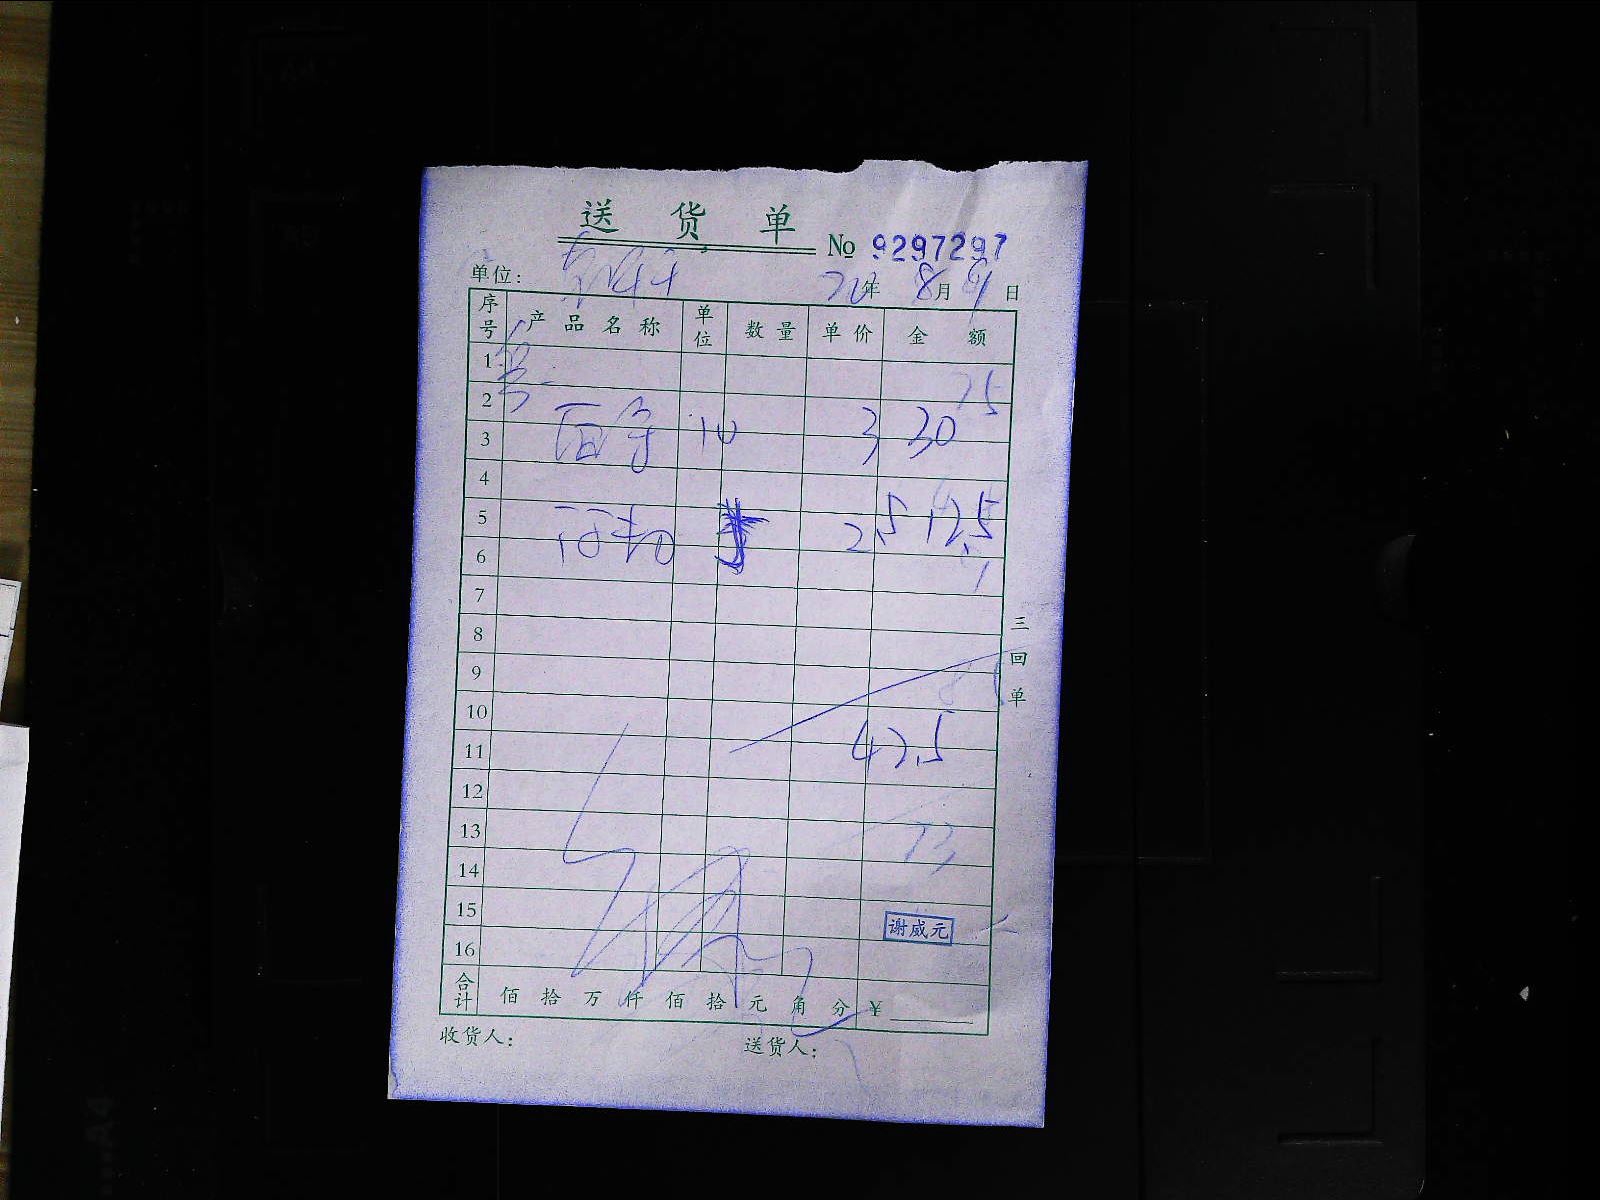 送 货 单
No 9297297
单位: 20年 8月 9日
序号 产品名称 单位 数量 单价 金额
1
75
2
3 10 3 30
4
5 2.5 12.5
6
7
8
9
10
11 42.5
12
13 73
14
15 谢威元
16
合计 佰 拾 万 仟 佰 拾 元 角 分 ¥
收货人: 送货人:
三回单